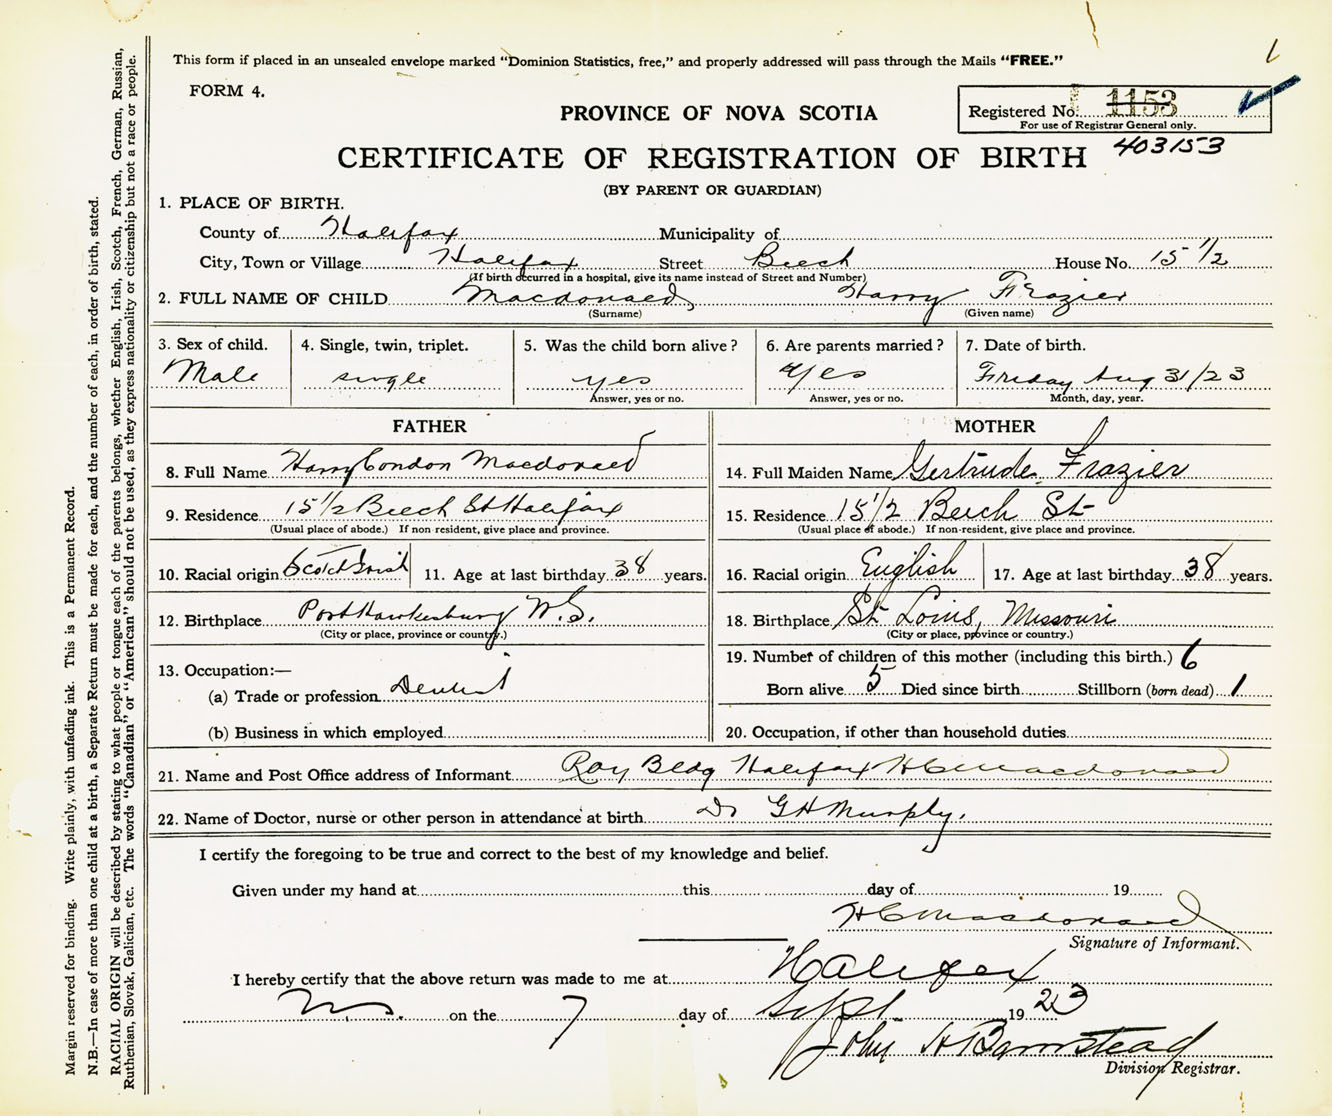 This form if placed in an unsealed envelope marked "Dominion Statistics, free," and properly addressed will pass through the Mails "FREE."
FORM 4.
PROVINCE OF NOVA SCOTIA
Registered No. 1153
For use of Registrar General only.
403153
CERTIFICATE OF REGISTRATION OF BIRTH
(BY PARENT OR GUARDIAN)
1. PLACE OF BIRTH.
County of Halifax Municipality of
City, Town or Village Halifax Street Beech House No. 15 1/2
(If birth occurred in a hospital, give its name instead of Street and Number)
2. FULL NAME OF CHILD Macdonald Harry Frazier
(Surname) (Given name)
3. Sex of child. 4. Single, twin, triplet. 5. Was the child born alive? 6. Are parents married? 7. Date of birth.
Male single yes yes Friday Aug 31/23
Answer, yes or no. Answer, yes or no. Month, day, year.
FATHER MOTHER
8. Full Name Harry Condon Macdonald 14. Full Maiden Name Gertrude Frazier
9. Residence 15 1/2 Beech St Halifax 15. Residence 15 1/2 Beech St
(Usual place of abode.) If non-resident, give place and province. (Usual place of abode.) If non-resident, give place and province.
10. Racial origin Scotch Irish 11. Age at last birthday 38 years. 16. Racial origin English 17. Age at last birthday 38 years.
12. Birthplace Port Hawkesbury N.S. 18. Birthplace St. Louis, Missouri
(City or place, province or country.) (City or place, province or country.)
13. Occupation:— 19. Number of children of this mother (including this birth.) 6
(a) Trade or profession Dentist Born alive 5 Died since birth Stillborn (born dead) 1
(b) Business in which employed 20. Occupation, if other than household duties
21. Name and Post Office address of Informant Roy Bldg Halifax H C Macdonald
22. Name of Doctor, nurse or other person in attendance at birth Dr G H Murphy.
I certify the foregoing to be true and correct to the best of my knowledge and belief.
Given under my hand at this day of 19
H C Macdonald
Signature of Informant.
I hereby certify that the above return was made to me at Halifax
N.S. on the 7 day of Sept 1923
John H Barnstead
Division Registrar.
Margin reserved for binding. Write plainly, with unfading ink. This is a Permanent Record.
N.B.—In case of more than one child at a birth, a Separate Return must be made for each, and the number of each, in order of birth, stated.
RACIAL ORIGIN will be described by stating to what people or tongue each of the parents belongs, whether English, Irish, Scotch, French, German, Russian,
Ruthenian, Slovak, Galician, etc. The words "Canadian" or "American" should not be used, as they express nationality or citizenship but not a race or people.